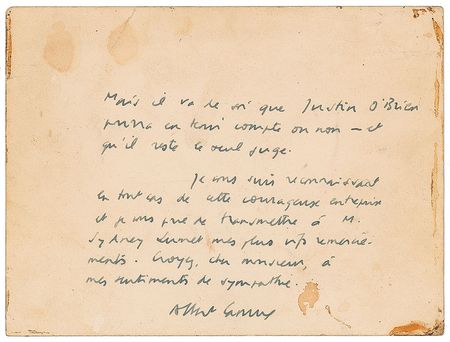 Mais il va de soi que Justin O'Brien
pourra en tenir compte ou non — et
qu'il reste le seul juge.
Je vous suis reconnaissant
en tout cas de cette courageuse entreprise
et je vous prie de transmettre à M.
Sydney Lumet mes plus vifs remercie-
ments. Croyez, cher monsieur, à
mes sentiments de sympathie.
Albert Camus